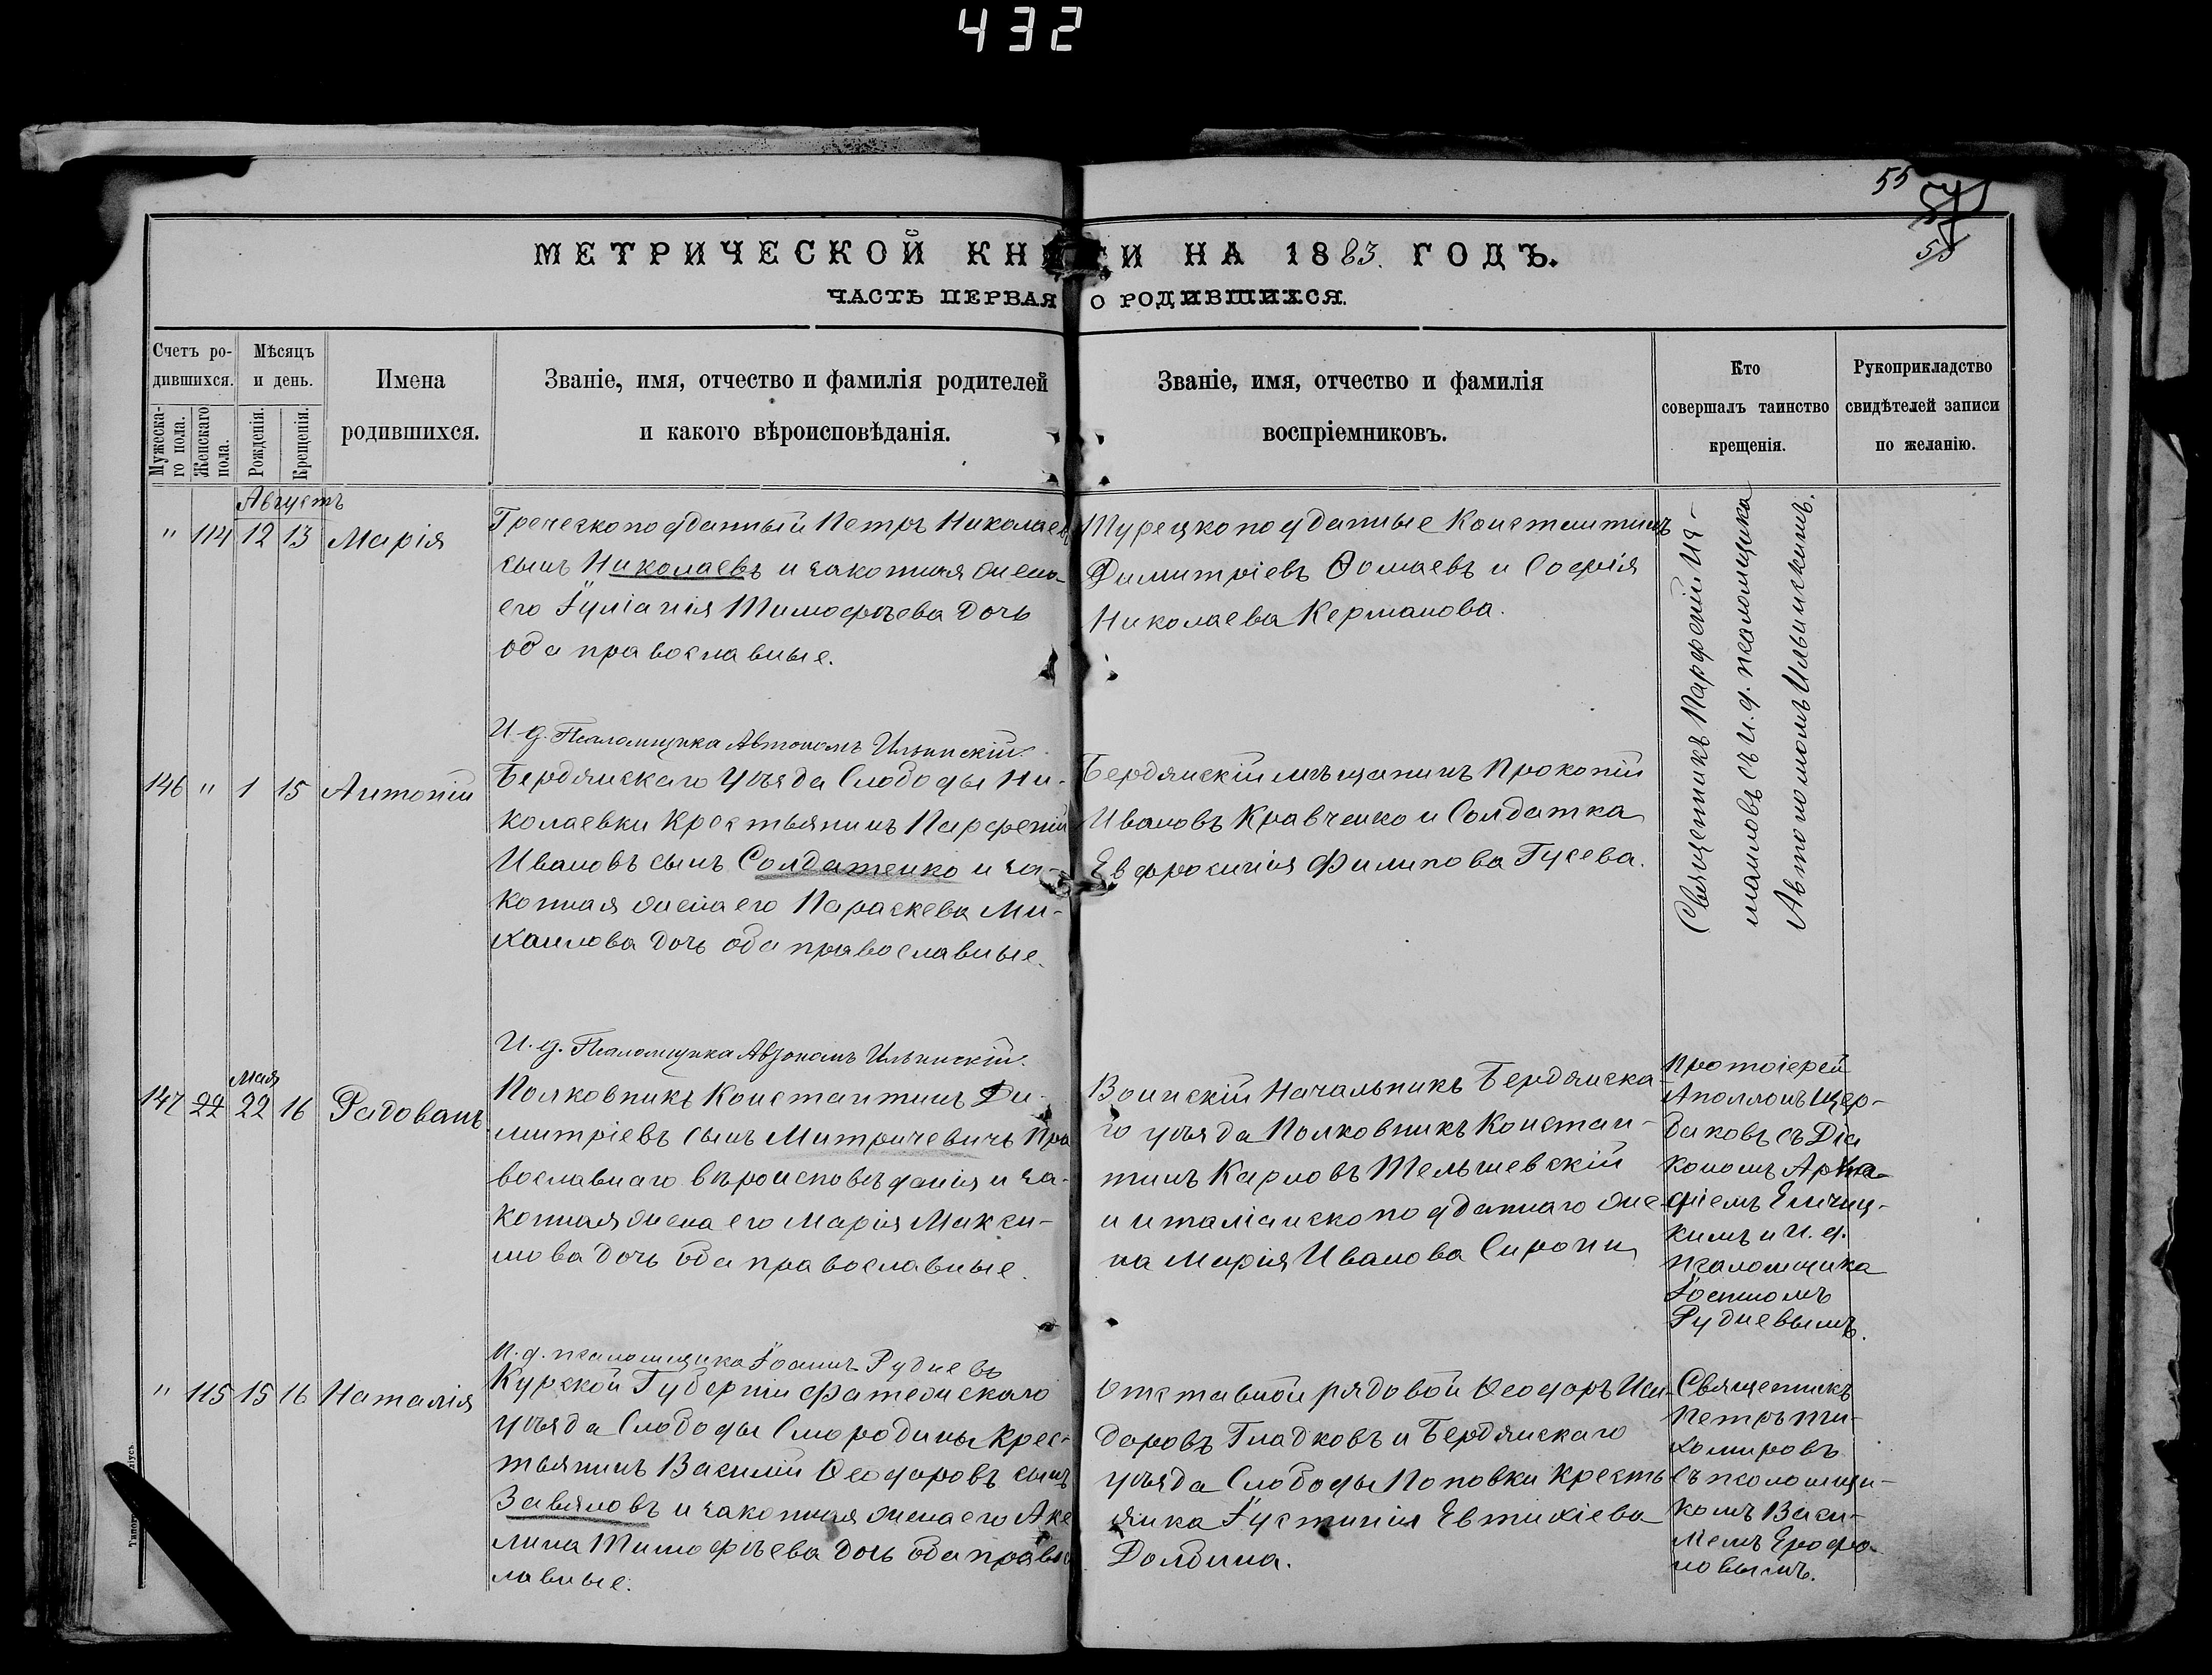 432
55
55
МЕТРИЧЕСКОЙ КНИГИ НА 1883. ГОДЪ.
ЧАСТЬ ПЕРВАЯ О РОДИВШИХСЯ.
Счетъ ро-
дившихся.
Мужеска-
го пола.
Женскаго
пола.
Мѣсяцъ
и день.
Рожденія.
Крещенія.
Имена
родившихся.
Званіе, имя, отчество и фамилія родителей
и какого вѣроисповѣданія.
Званіе, имя, отчество и фамилія
воспріемниковъ.
Кто
совершалъ таинство
крещенія.
Рукоприкладство
свидѣтелей записи
по желанію.
Августъ
" 114 12 13 Марія
Греческоподданный Петръ Николаевъ
сынъ Николаевъ и законная жена
его Іуліанія Тимофѣева дочь
оба православные.
Турецкоподданные Константинъ
Димитріевъ Ѳомаевъ и Софія
Николаева Керманова.
Священникъ Парфеній Из-
маиловъ съ И. д. псаломщика
Автономомъ Ильинскимъ.
И. д. Псаломщика Автономъ Ильинскій.
146 " 1 15 Антоній
Бердянскаго Уѣзда Слободы Ни-
колаевки крестьянинъ Парфеній
Ивановъ сынъ Солдатенко и за-
конная жена его Параскева Ми-
хаилова дочь оба православные.
Бердянскій мѣщанинъ Прокопій
Ивановъ Кравченко и Солдатка
Евфросинія Филипова Гусева.
И. д. Псаломщика Автономъ Ильинскій.
Мая
147 22 22 16 Радованъ
Полковникъ Константинъ Ди-
митріевъ сынъ Митричевичъ Пра
вославнаго вѣроисповѣданія и за-
конная жена его Марія Макси-
мова дочь оба православные.
Воинскій Начальникъ Бердянска-
го уѣзда Полковникъ Констан-
тинъ Карловъ Тельшевскій
и италіанскоподданнаго же-
на Марія Иванова Сиропи
Протоіерей
Аполлонъ Щер-
баковъ съ Діа
кономъ
Іоанномъ
Рудневымъ.
кимъ и И. д.
псаломщика
И. д. псаломщика Іоаннъ Рудневъ
" 115 15 16 Наталія
Курской Губерніи Фатежскаго
уѣзда Слободы Смородины крес-
тьянинъ Василій Ѳеодоровъ сынъ
Завяловъ и законная жена его Аки
лина Тимофѣева дочь оба правос
лавные.
Отставной рядовой Ѳеодоръ Иси-
доровъ Гладковъ и Бердянскаго
уѣзда Слободы Поповки кресть
янка Іустинія Евтихіева
Долбина.
Священникъ
Петръ Ти-
хомировъ
съ псаломщи-
комъ Васи-
ліемъ